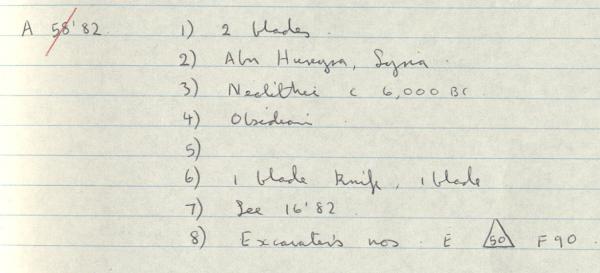 A 58'82 1) 2 blades.
2) Abu Hureyra, Syria.
3) Neolithic c 6,000 BC.
4) Obsidian
5)
6) 1 blade knife, 1 blade
7) See 16'82
8) Excavater's nos. E 50 F90.